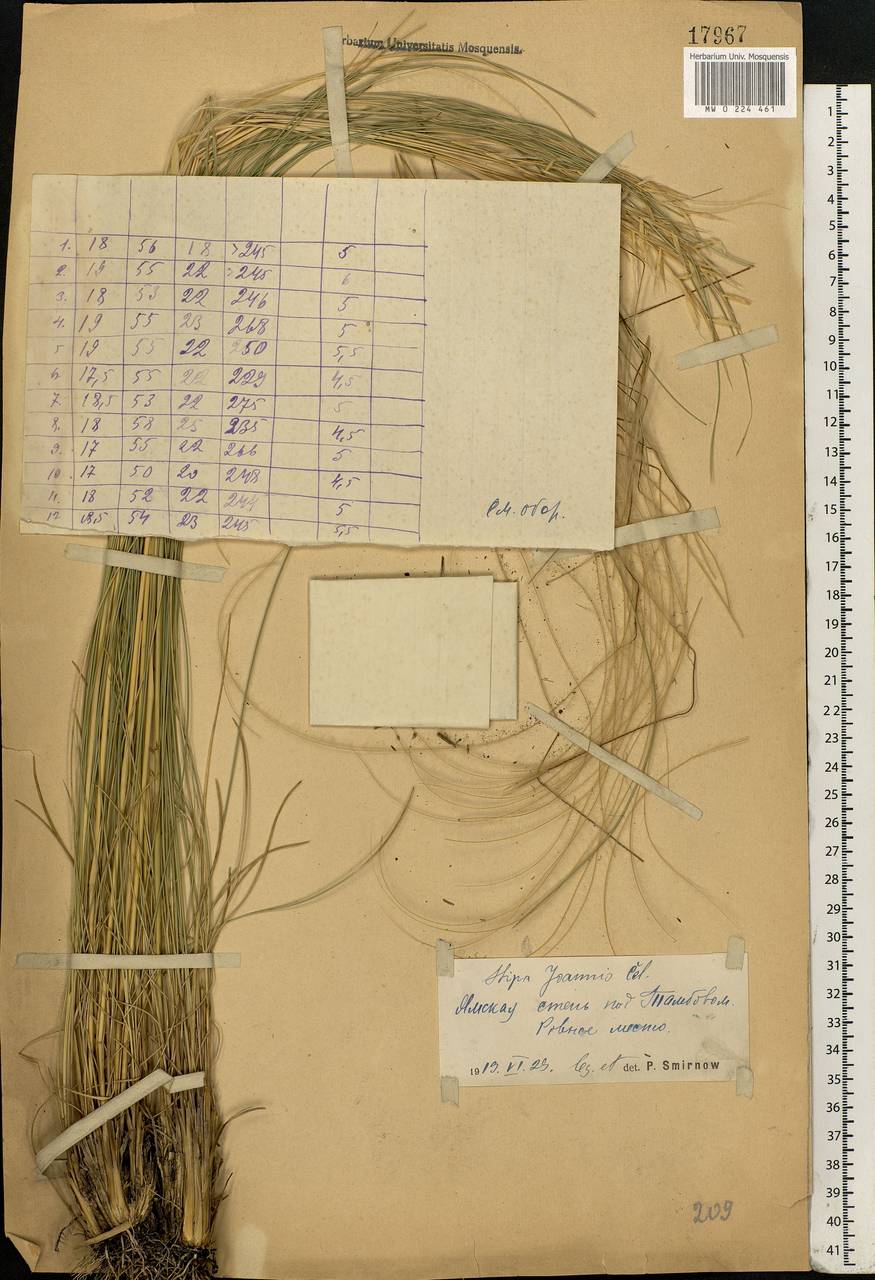 Herbarium Universitatis Mosquensis.
17967
Herbarium Univ. Mosquensis
MW 0 224 461
1. 18 56 18 >245 5
2. 19 55 22 245 6
3. 18 53 22 246 5
4. 19 55 23 268 5
5 19 55 22 250 5,5
6 17,5 55 22 229 4,5
7. 18,5 53 22 275 5
8. 18 58 25 235 4,5
9. 17 55 22 266 5
10 17 50 20 248 4,5
11. 18 52 22 244 5
12 18,5 54 23 245 5,5
См. обор.
Stipa Joannis Čel.
Ямская степь под Тамбовом.
Ровное место.
1913. VI. 23. Lg. et det. P. Smirnow
209
1
2
3
4
5
6
7
8
9
10
11
12
13
14
15
16
17
18
19
20
21
22
23
24
25
26
27
28
29
30
31
32
33
34
35
36
37
38
39
40
41